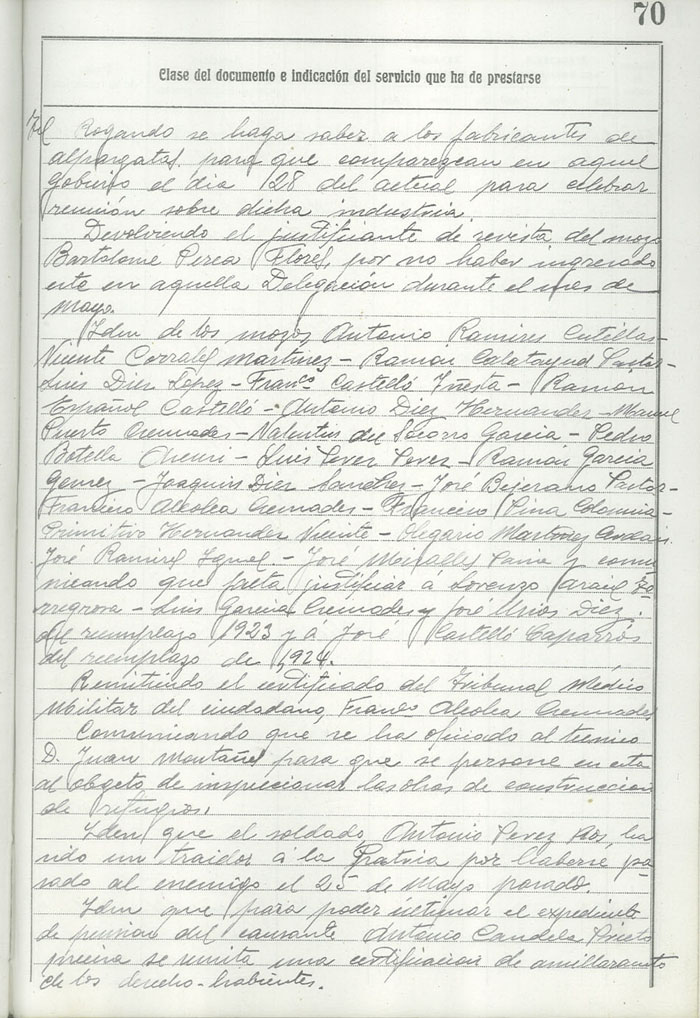 70
Clase del documento e indicación del servicio que ha de prestarse
Rogando se haga saber a los fabricantes de
alpargatas, para que comparezcan en aquel
Gobierno el dia 28 del actual para celebrar
reunión sobre dicha industria.
Devolviendo el justificante de revista del mozo
Bartolome Perea Flores, por no haber ingresado
este en aquella Delegación durante el mes de
Mayo.
Idem de los mozos, Antonio Ramires Cutillas-
Vicente Corrales Martinez - Ramón Calatayud Pastor-
Luis Diez López - Franco Castelló Iñesta - Ramón
Español Castelló - Antonio Diez Hernandez - Manuel
Puerto Cremades - Valentin del Socorro Garcia - Pedro
Botella - Luis Perez Perez - Ramón Garcia
Gomez - Joaquin Diez Sanchez - José Bejerano Pastor-
Francisco Alcolea Cremades - Francisco Pina Colomina-
Primitivo Hernandez Vicente - Olegario Martinez
José Ramirez - José y comu
nicando que falta justificar á Lorenzo
rregrosa - Luis Garcia Cremades y José Urios Diez
del reemplazo 1923 y á José Castelló Caparrós
del reemplazo de 1924.
Remitiendo el certificado del Tribunal Médico
Militar del ciudadano, Franco Alcolea Cremades
Comunicando que se ha oficiado al técnico
D. Juan Montañes para que se persone en esta
al objeto de inspeccionar las obras de construccion
de refugios.
Idem que el soldado, Antonio Perez Ros, ha
sido un traidor á la Patria por haberse pa-
sado al enemigo el 25 de Mayo pasado.
Idem que para poder ultimar el expediente
de pension del causante Antonio Candela Prieto
precisa se remita una certificacion de amillaramto
de los derecho-habientes.